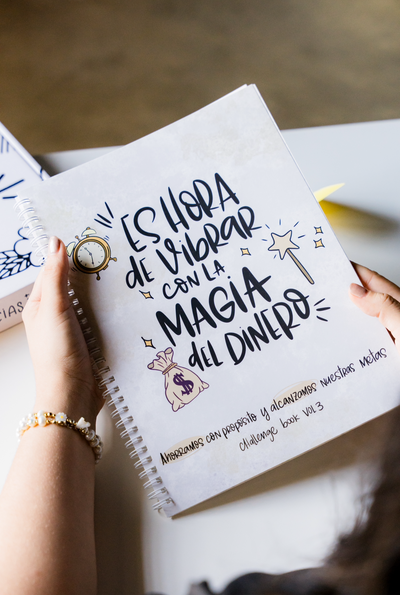 ES HORA
DE VIBRAR
CON LA
MAGIA
DEL DINERO
$
AHORRAMOS CON PROPÓSITO Y ALCANZAMOS NUESTRAS METAS
Challenge book Vol.3
CIAS